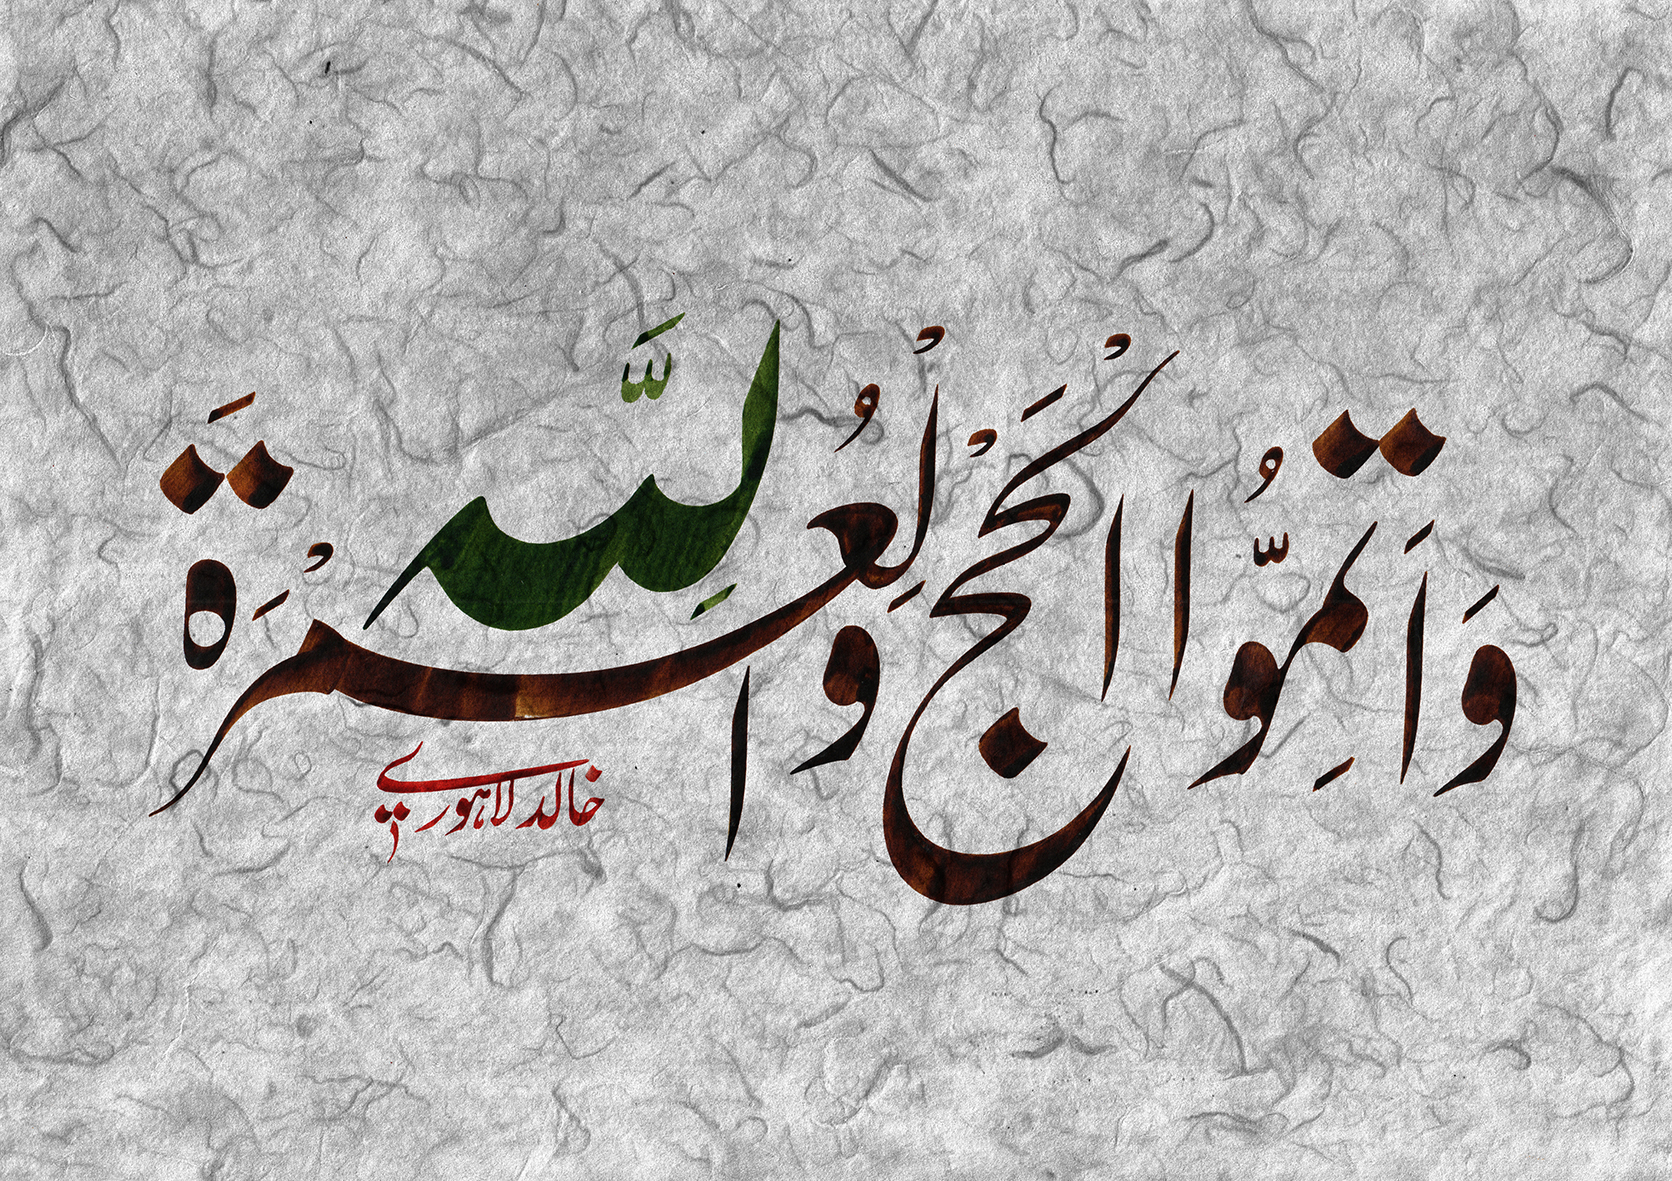 وَاَتِمُّوا الْحَجَّ وَالْعُمْرَةَ لِلّٰهِ
خالد لاہوری